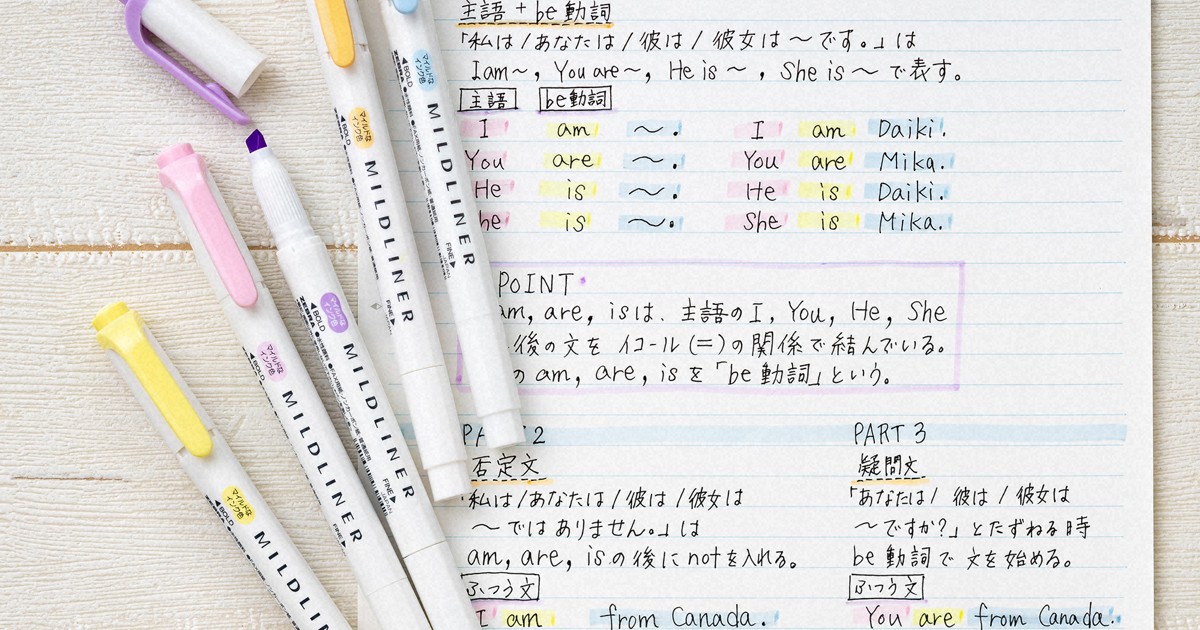 主語 + be動詞
「私は/あなたは/彼は/彼女は〜です。」は
I am〜, You are〜, He is〜, She is〜で表す。
主語 be動詞
I am 〜. I am Daiki.
You are 〜. You are Mika.
He is 〜. He is Daiki.
he is 〜. She is Mika.
POINT
am, are, isは、主語のI, You, He, She
後の文をイコール(=)の関係で結んでいる。
のam, are, isを「be動詞」という。
PART 2
否定文
「私は/あなたは/彼は/彼女は
〜ではありません。」は
am, are, isの後にnotを入れる。
ふつう文
I am from Canada.
PART 3
疑問文
「あなたは/彼は/彼女は
〜ですか?」とたずねる時
be動詞で文を始める。
ふつう文
You are from Canada.
マイルドなインク色
BOLD
MILDLINER
FINE
マイルドなインク色
BOLD
MILDLINER
FINE
JAPAN
マイルドなインク色
BOLD
ZEBRA
MILDLINER
FINE
JAPAN
マイルドなインク色
BOLD
MILDLINER
FINE
マイルドなインク色
BOLD
MILDLIN